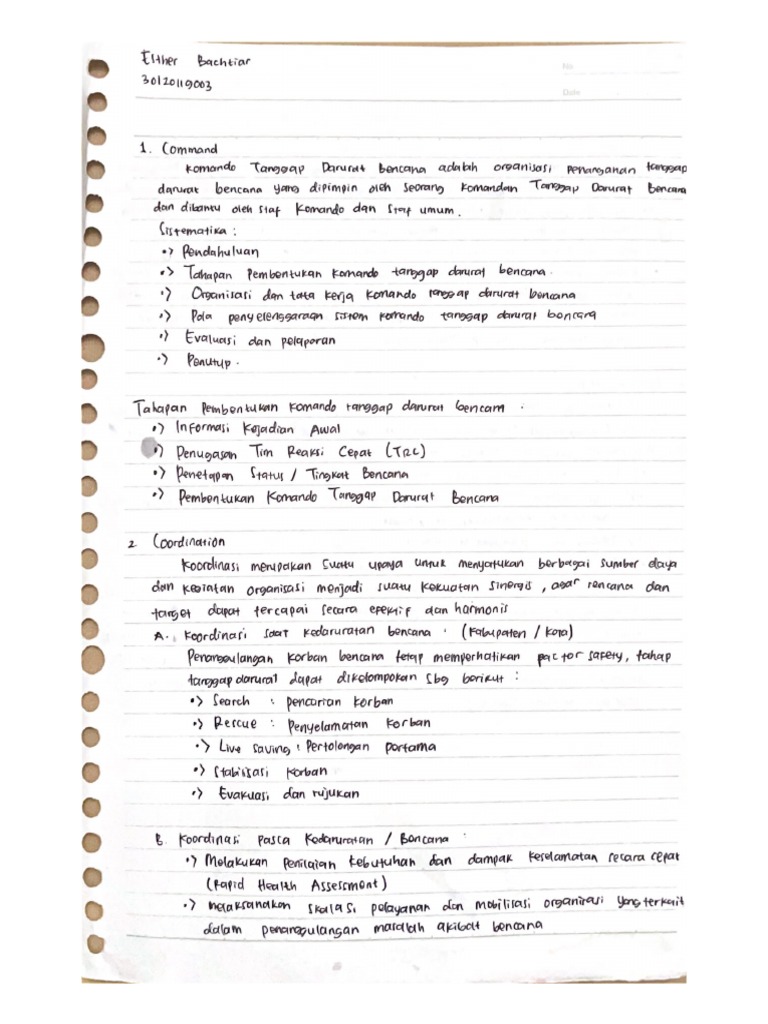 Esther Bachtiar
30120119003
No
Date
1. Command
Komando Tanggap Darurat bencana adalah organisasi penanganan tanggap
darurat bencana yang dipimpin oleh seorang komandan Tanggap Darurat Bencana
dan dibantu oleh staf komando dan staf umum.
Sistematika :
•> Pendahuluan
•> Tahapan Pembentukan komando tanggap darurat bencana.
•> Organisasi dan tata kerja komando tanggap darurat bencana
•> Pola penyelenggaraan sistem komando tanggap darurat bencana
•> Evaluasi dan pelaporan
•> Penutup.
Tahapan Pembentukan komando tanggap darurat bencam :
•> Informasi Kejadian Awal
•> Penugasan Tim Reaksi Cepat (TRC)
•> Penetapan Status / Tingkat Bencana
•> Pembentukan Komando Tanggap Darurat Bencana
2. Coordination
Koordinasi merupakan suatu upaya untuk menyatukan berbagai sumber daya
dan kegiatan organisasi menjadi suatu kekuatan sinergis, agar rencana dan
target dapat tercapai secara efektif dan harmonis
A. Koordinasi saat kedaruratan bencana : (Kabupaten / Kota)
Penanggulangan korban bencana tetap memperhatikan factor safety, tahap
tanggap darurat dapat dikelompokan sbg berikut :
•> Search : pencarian korban
•> Rescue : Penyelamatan korban
•> Live saving : Pertolongan pertama
•> Stabilisasi korban
•> Evakuasi dan rujukan
B. Koordinasi Pasca Kedaruratan / Bencana :
•> Melakukan penilaian kebutuhan dan dampak keselamatan secara cepat
(Rapid Health Assessment)
•> melaksanakan skalasi pelayanan dan mobilisasi organisasi yang terkait
dalam penanggulangan masalah akibat bencana